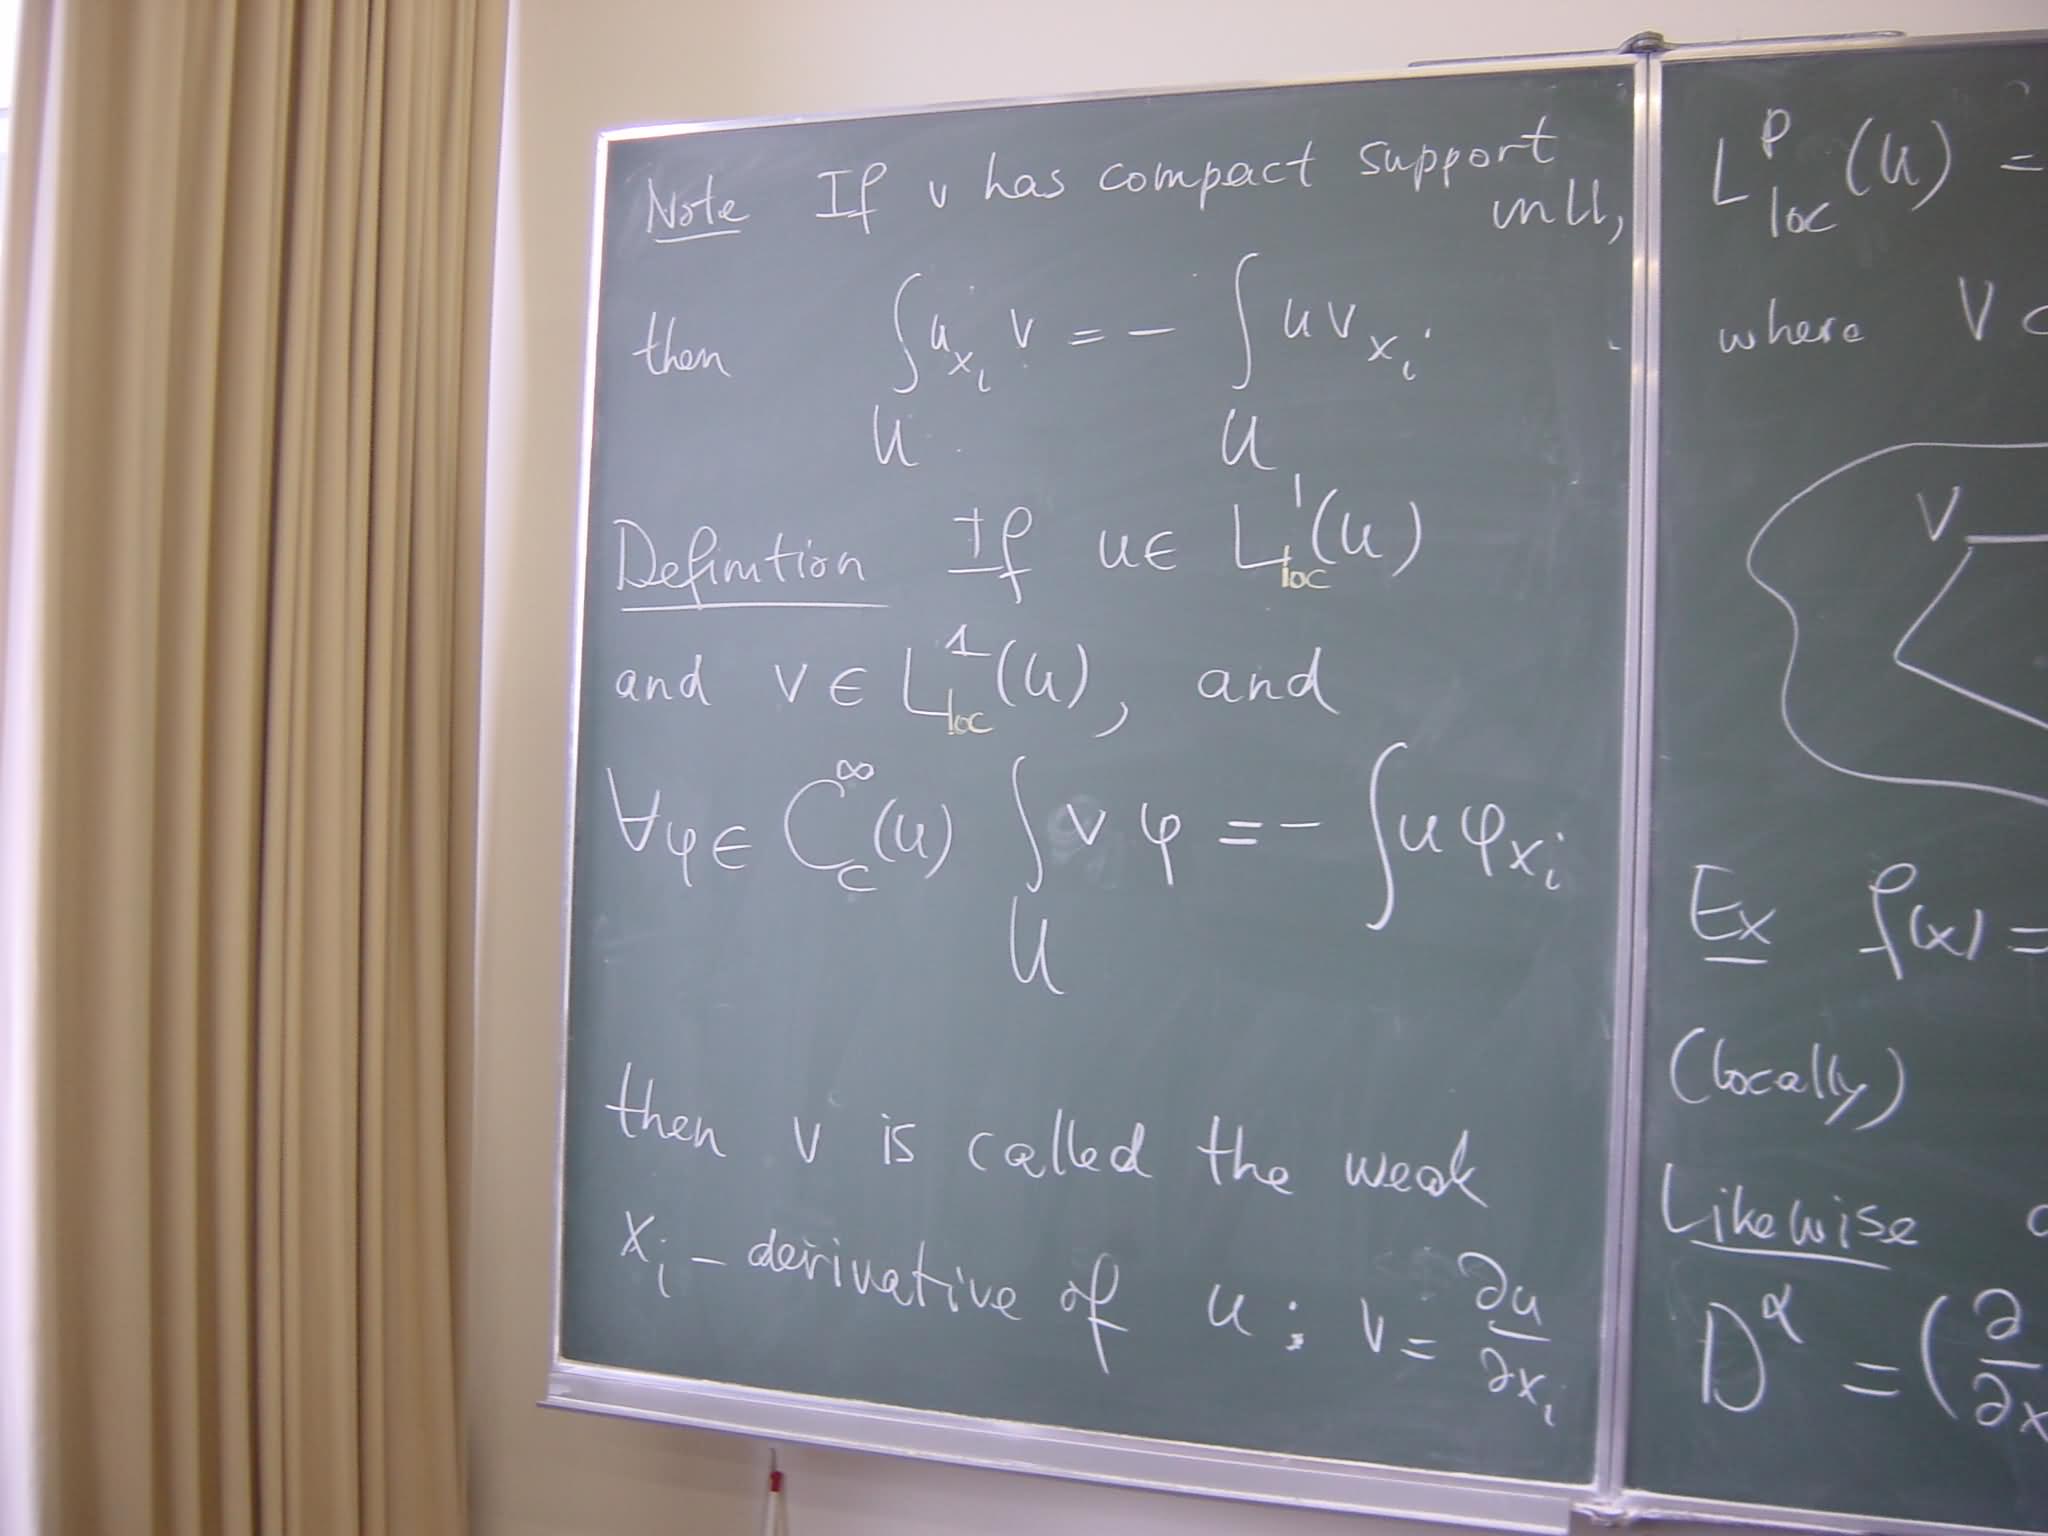 Note If v has compact support
in U,
then ∫_U u_{x_i} v = - ∫_U u v_{x_i}
Definition If u ∈ L^1_{loc}(U)
and v ∈ L^1_{loc}(U), and
∀φ ∈ C_c^∞(U) ∫_U v φ = - ∫ u φ_{x_i}
then v is called the weak
x_i - derivative of u; v = ∂u/∂x_i
L^p_{loc}(U) =
where V ⊂
V
Ex f(x) =
(locally)
Likewise
D^α = (∂/∂x